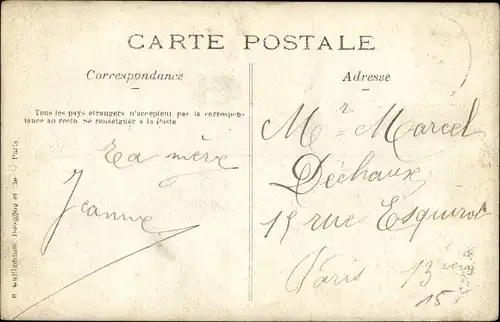 CARTE POSTALE
Correspondance
Adresse
Tous les pays étrangers n'acceptent pas la correspon-
dance au recto. Se renseigner à la Poste
Ta mère
Jeanne
Mr Marcel
Déchaux
15 rue Esquirol
Paris 13 ième
15
Paris